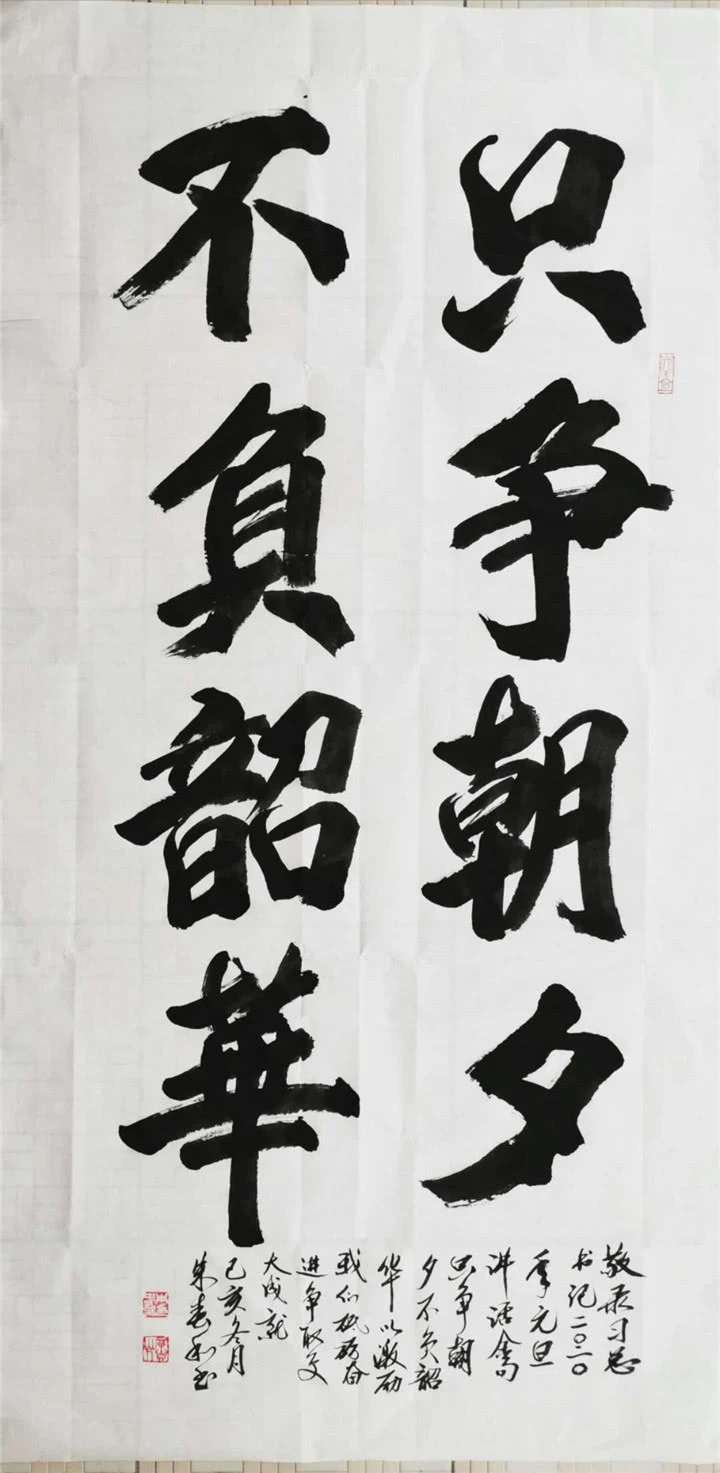 只争朝夕
不負韶華
敬录习总
书记二〇二〇
年元旦
讲话金句
只争朝
夕不负韶
华以激励
我们砥砺奋
进争取更
大成就
己亥冬月
朱春和书